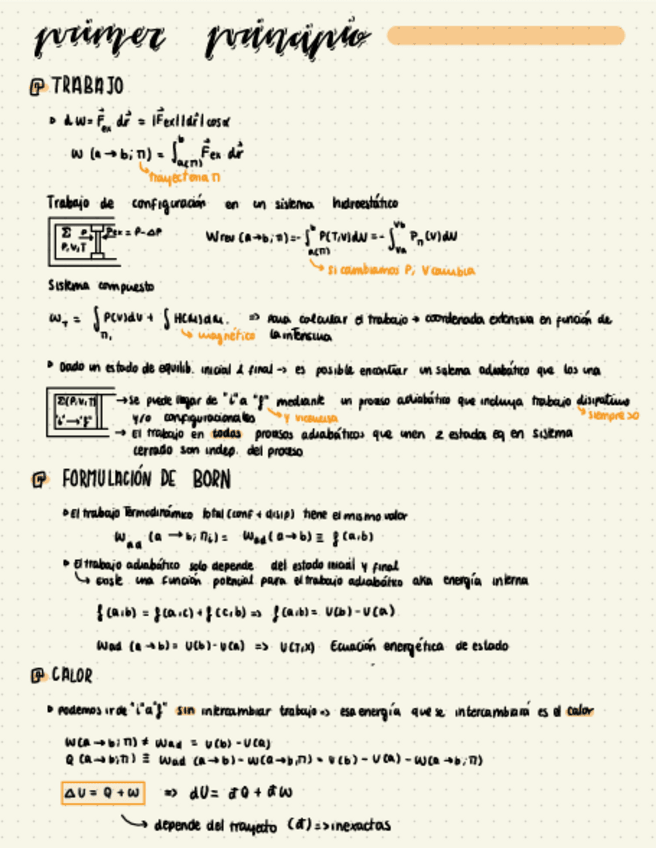 primer principio
TRABAJO
đW = F⃗ex dr⃗ = |F⃗ex||dr⃗|cosα
W (a → b; Π) = ∫_{a(Π)}^{b} F⃗ex dr⃗
trayectoria Π
Trabajo de configuración en un sistema hidroestático
Σ P,V,T Pex = P-ΔP
Wrev (a→b; Π) = - ∫_{a(Π)}^{b} P(T,V)dV = - ∫_{Va}^{Vb} P_Π (V)dV
si cambiamos P, V cambia
Sistema compuesto
W_T = ∫_{Π₁} P(V)dV + ∫ H(M)dM. => para calcular el trabajo → coordenada extensiva en función de
magnético la intensiva
Dado un estado de equilib. inicial & final → es posible encontrar un sistema adiabático que los una
Σ(P,V,T) "i"→"f"
→ se puede llegar de "i" a "f" mediante un proceso adiabático que incluya trabajo disipativo
y/o configuracionales y viceversa siempre >0
→ El trabajo en todos procesos adiabáticos que unen 2 estados eq en sistema
cerrado son indep. del proceso
FORMULACIÓN DE BORN
El trabajo Termodinámico total (conf + disip) tiene el mismo valor
W_ad (a → b; Πi) = W_ad (a → b) ≡ f (a,b)
El trabajo adiabático solo depende del estado inicial y final
↳ existe una función potencial para el trabajo adiabático aka energía interna
f (a,b) = f(a,c) + f(c,b) => f(a,b) = U(b) - U(a)
Wad (a → b) = U(b) - U(a) => U(T,X) Ecuación energética de estado
CALOR
podemos ir de "i" a "f" sin intercambiar trabajo => esa energía que se intercambiará es el calor
W(a → b; Π) ≠ Wad = U(b) - U(a)
Q (a → b; Π) ≡ Wad (a → b) - W(a → b; Π) = U(b) - U(a) - W(a → b; Π)
ΔU = Q + W => dU = đQ + đW
depende del trayecto (đ) => inexactas